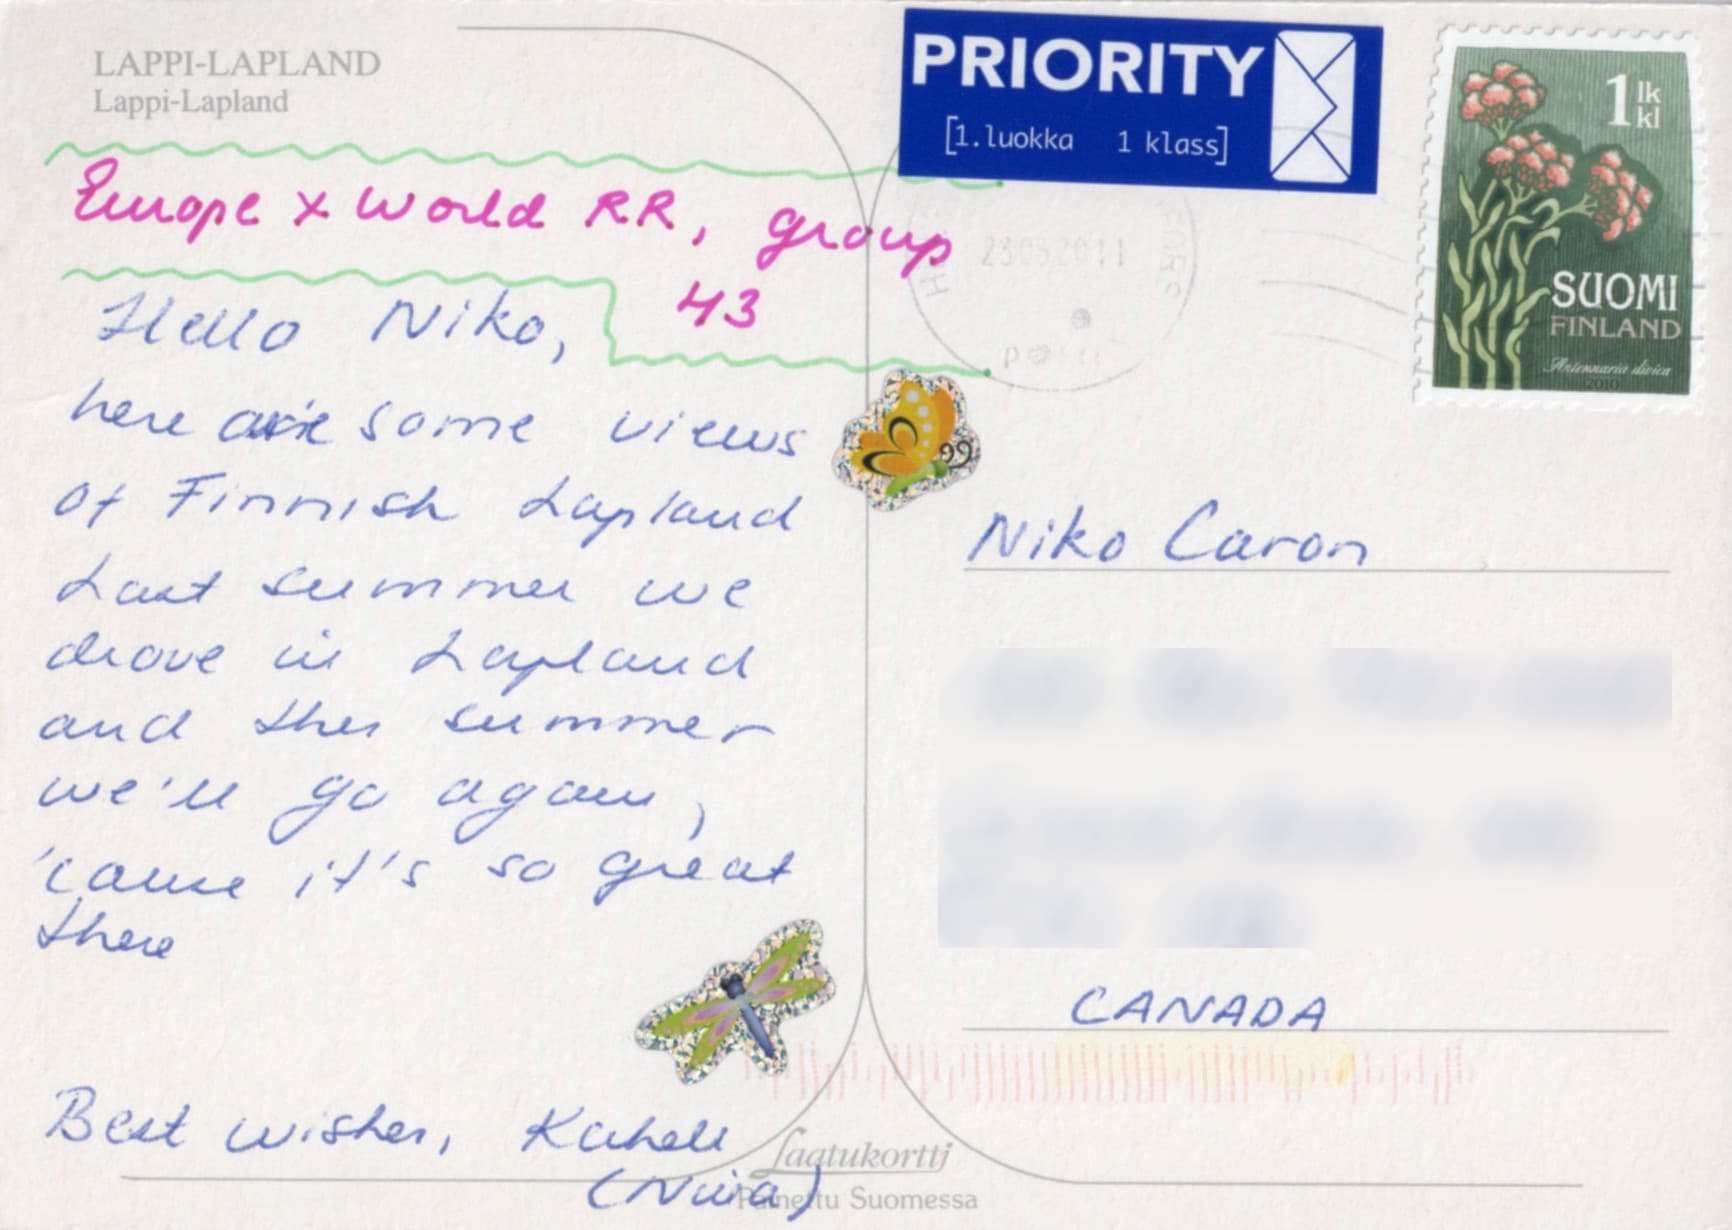 LAPPI-LAPLAND
Lappi-Lapland
Europe x World RR, group
43
Hello Niko,
here are some views
of Finnish Lapland
Last summer we
drove in Lapland
and this summer
we'll go again,
'cause it's so great
there
Best wishes,
PRIORITY
[1.luokka 1 klass]
1 lk
kl
SUOMI
FINLAND
Antennaria dioica
2010
Niko Caron
CANADA
Laatukortti
Painettu Suomessa